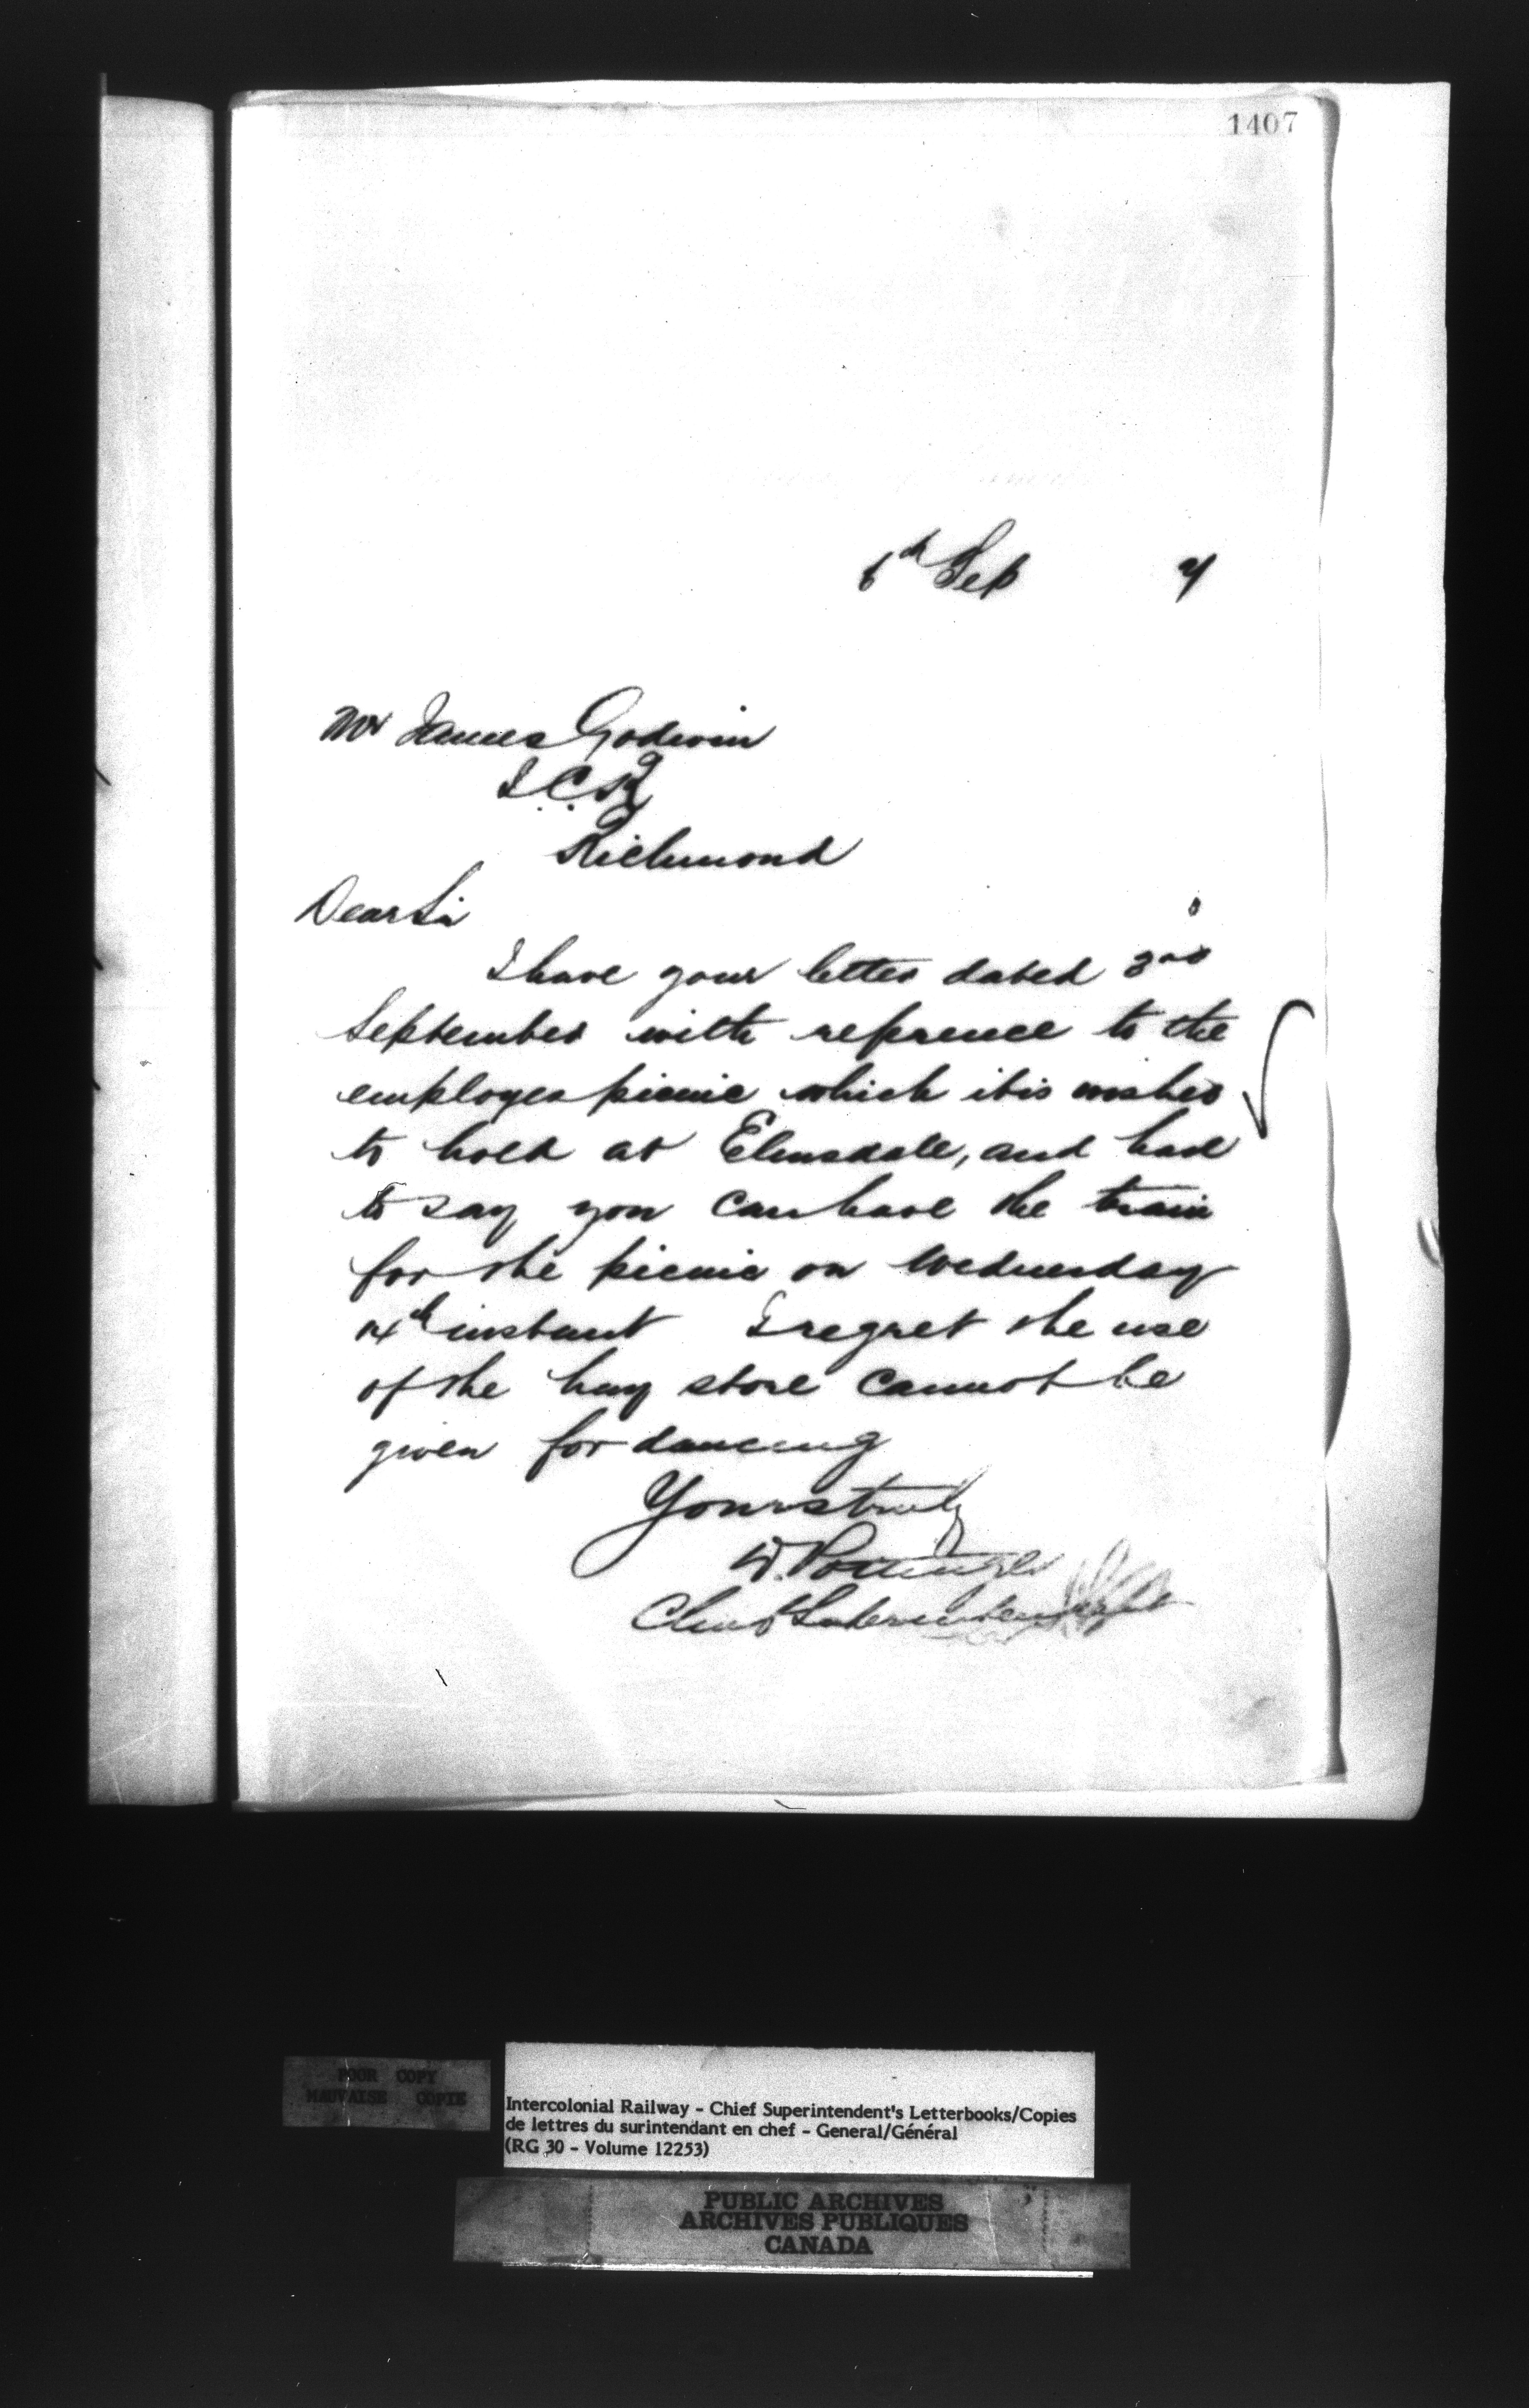 1407
6th Sep
Mr James Godwin
I.C.R
Richmond
Dear Sir
I have your letter dated 3rd
September with reference to the
employes picnic which it is wished
to hold at Elmsdale, and have
to say you can have the train
for the picnic on Wednesday
14th instant I regret the use
of the hay store cannot be
given for dancing
Yours truly
D. Pottinger
Chief Superintendent
POOR COPY
MAUVAISE COPIE
Intercolonial Railway - Chief Superintendent's Letterbooks/Copies
de lettres du surintendant en chef - General/Général
(RG 30 - Volume 12253)
PUBLIC ARCHIVES
ARCHIVES PUBLIQUES
CANADA